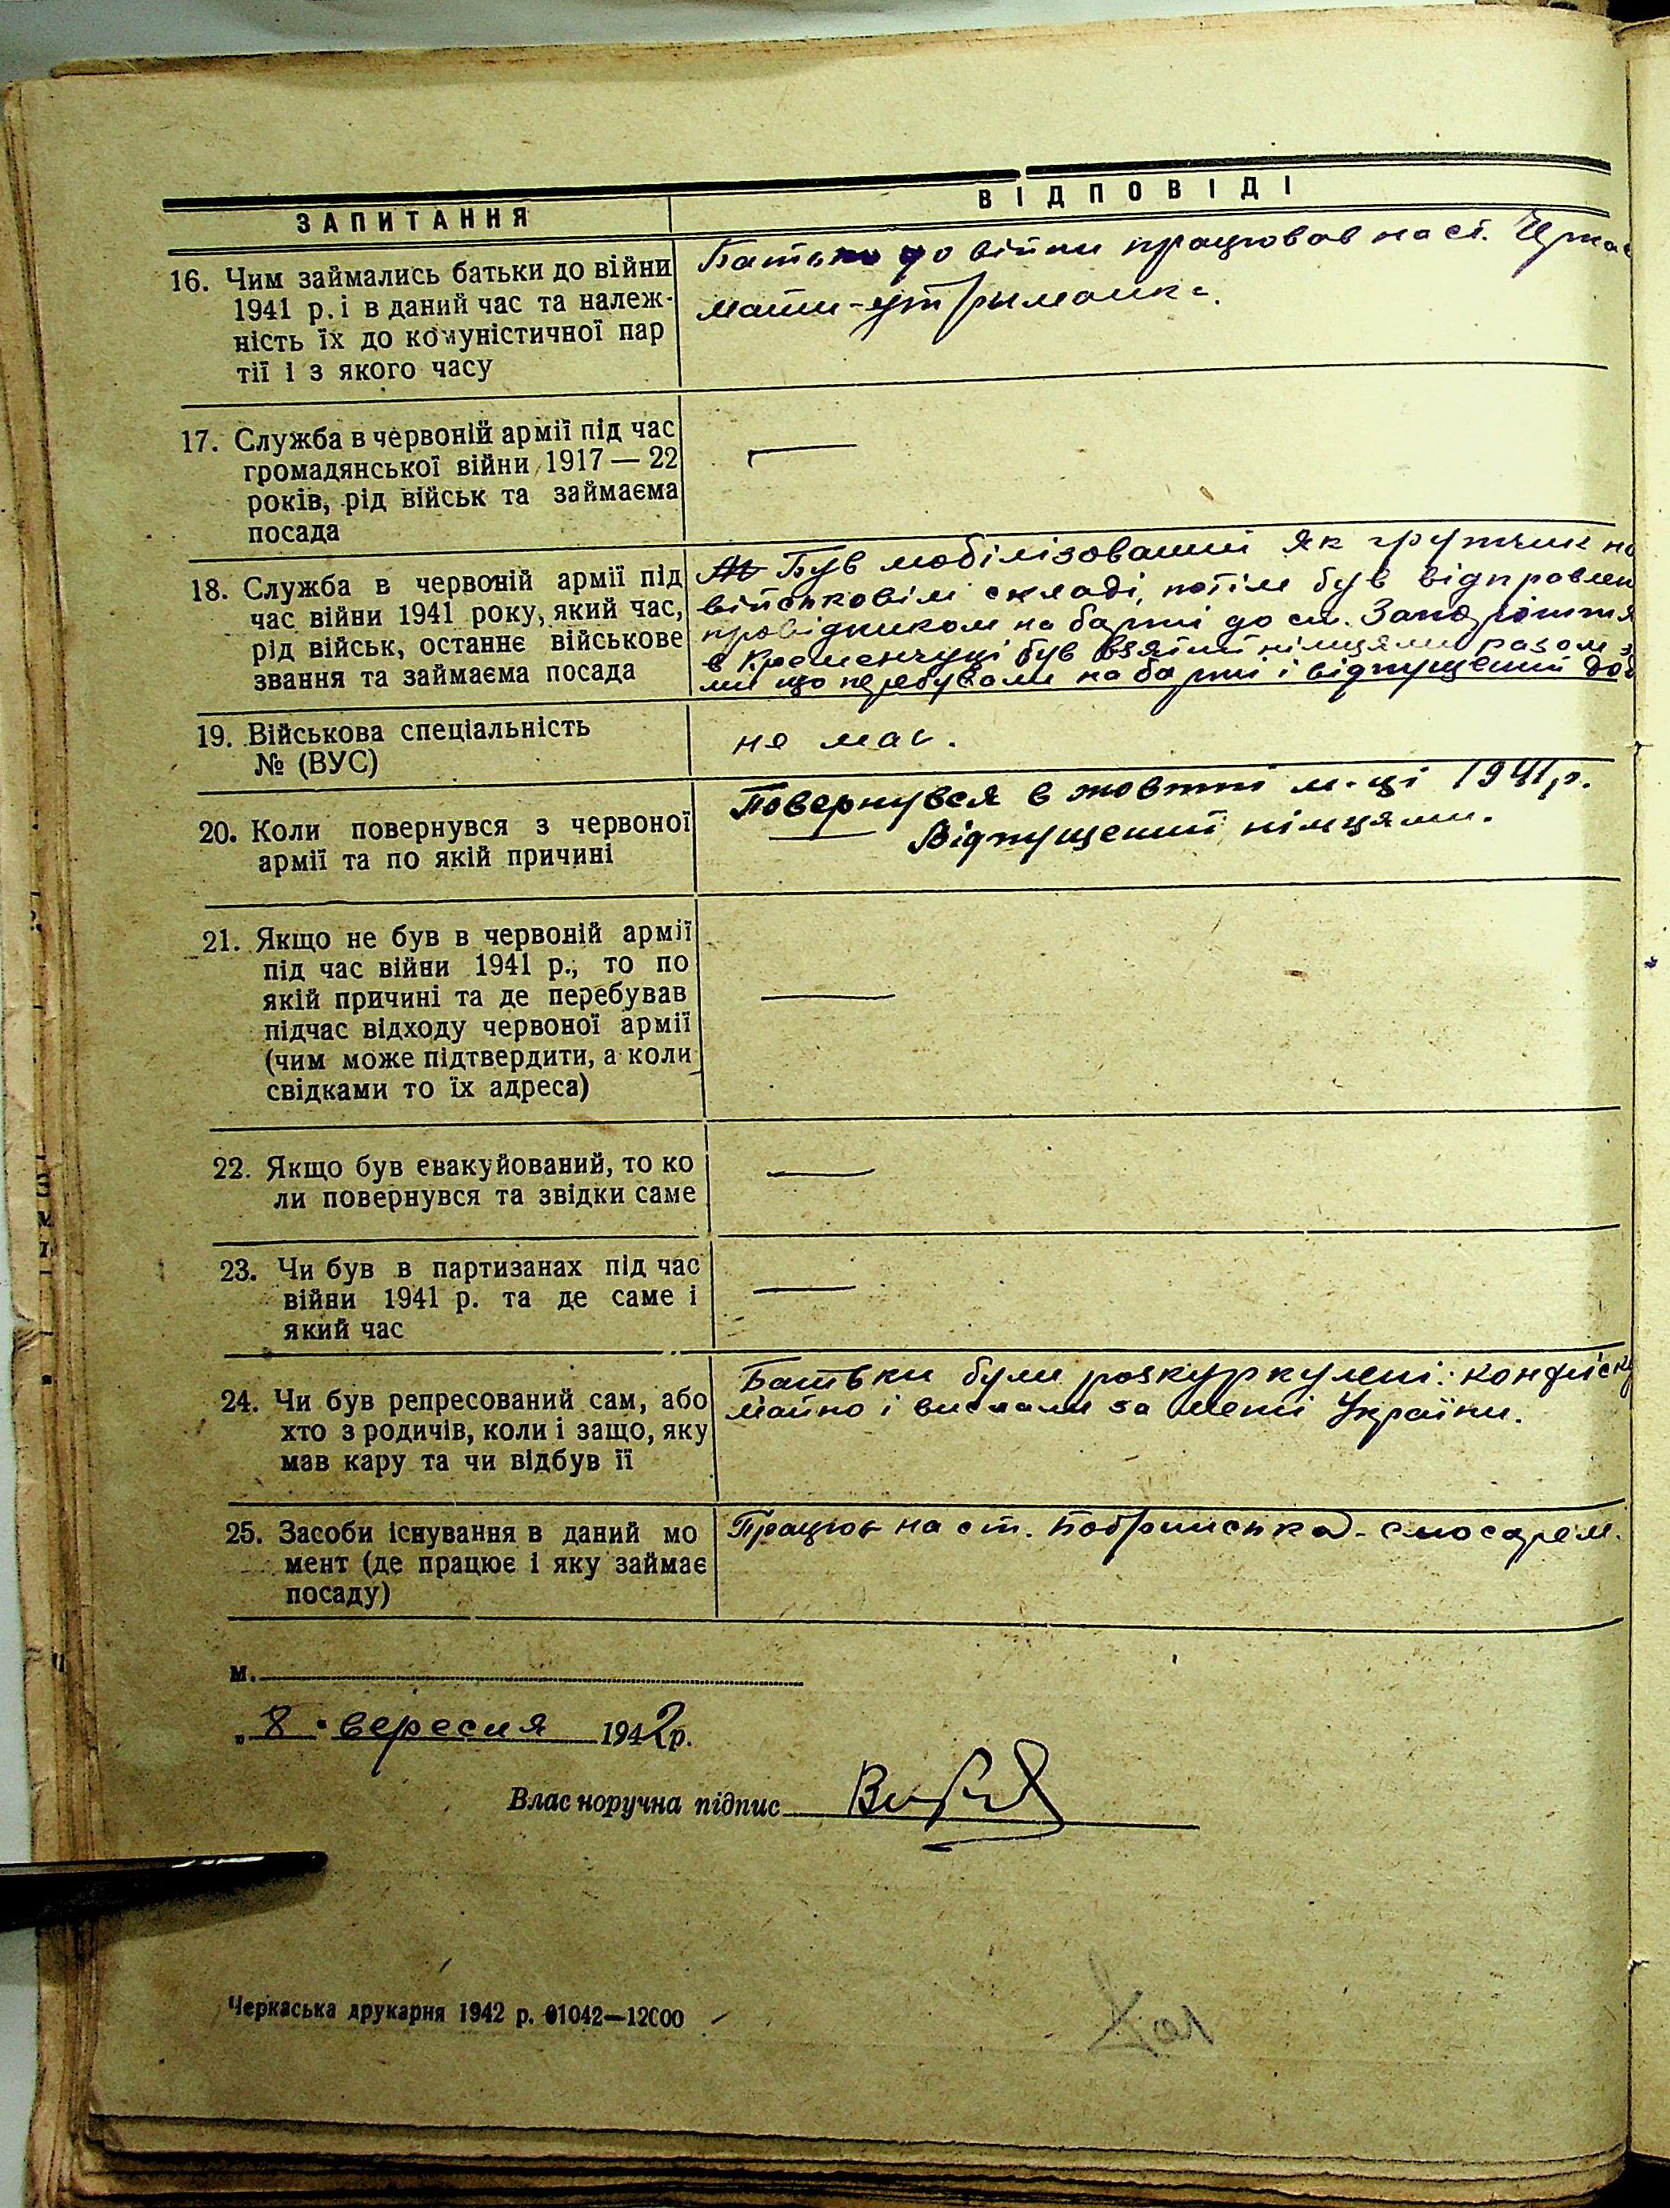 ЗАПИТАННЯ
ВІДПОВІДІ
16. Чим займались батьки до війни
1941 р. і в даний час та належ-
ність їх до комуністичної пар
тії і з якого часу
Батько до війни працював на ст. Черкас
мати-утрыманка.
17. Служба в червоній армії під час
громадянської війни 1917 — 22
років, рід військ та займаєма
посада
—
18. Служба в червоній армії під
час війни 1941 року, який час,
рід військ, останнє військове
звання та займаєма посада
Був мобілізований як грущик на
військовім складі, потім був відправлен
провідником на баржі до ст. Запоріжжя
в Кременчуці був взятий німцями разом з
ми що перебували на баржі і відпущений дод
19. Військова спеціальність
№ (ВУС)
не має.
20. Коли повернувся з червоної
армії та по якій причині
Повернувся в жовтні м-ці 1941 р.
Відпущений німцями.
21. Якщо не був в червоній армії
під час війни 1941 р., то по
якій причині та де перебував
підчас відходу червоної армії
(чим може підтвердити, а коли
свідками то їх адреса)
—
22. Якщо був евакуйований, то ко
ли повернувся та звідки саме
—
23. Чи був в партизанах під час
війни 1941 р. та де саме і
який час
—
24. Чи був репресований сам, або
хто з родичів, коли і защо, яку
мав кару та чи відбув її
Батьки були розкуркулені: конфіску
майно і вислали за межі України.
25. Засоби існування в даний мо
мент (де працює і яку займає
посаду)
Працює на ст. Бобринська - слюсарем.
м.
„ 8 " вересня 1942 р.
Власноручна підпис
Черкаська друкарня 1942 р. 01042—12000